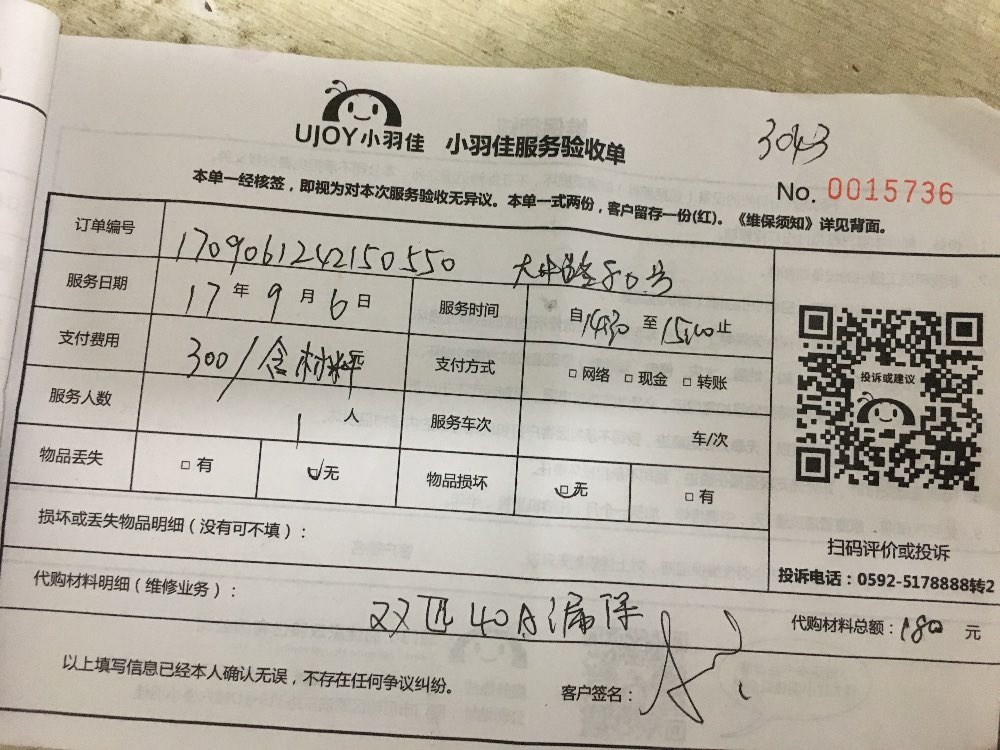 3043
UJOY小羽佳 小羽佳服务验收单
No. 0015736
本单一经核签，即视为对本次服务验收无异议。本单一式两份，客户留存一份(红)。《维保须知》详见背面。
订单编号 1709061242150550 80号
服务日期 17 年 9 月 6 日 服务时间 自1430 至1500止
支付费用 300/含材料元 支付方式 □ 网络 □ 现金 □ 转账
服务人数 1 人 服务车次 车/次
物品丢失 □ 有 □ 无 物品损坏 □ 无 □ 有
投诉或建议
扫码评价或投诉
投诉电话：0592-5178888转2
损坏或丢失物品明细（没有可不填）：
代购材料明细（维修业务）： 双匹40A漏保 代购材料总额：180 元
以上填写信息已经本人确认无误，不存在任何争议纠纷。 客户签名：